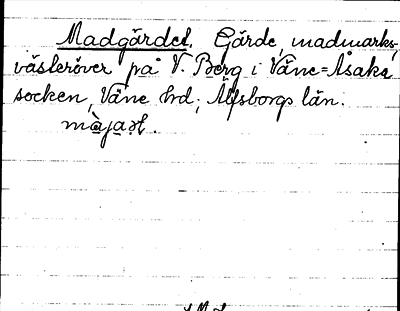 Madgärdet. Gärde, madmarks,
västeröver på V. Berg i Väne=Åsaka
socken, Väne hrd; Älfsborgs län.